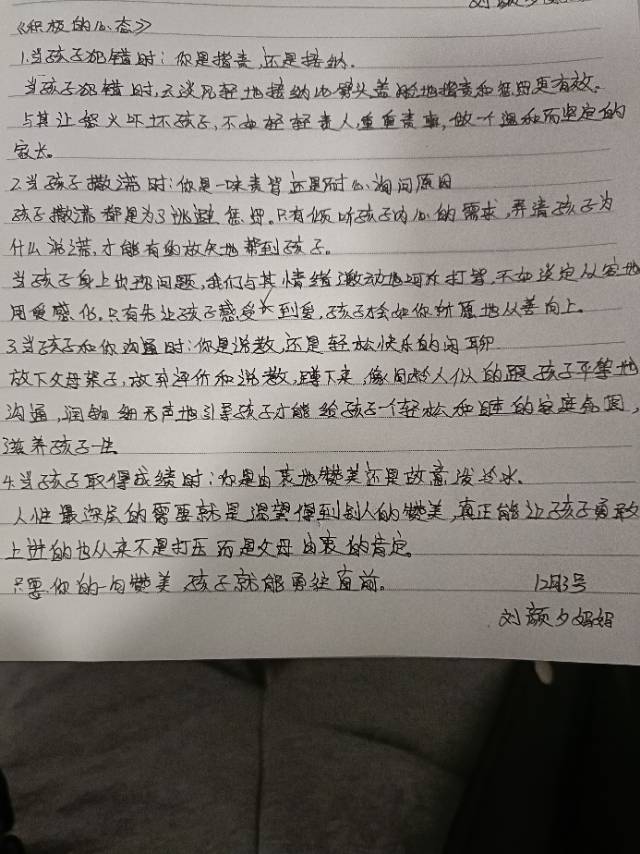 《积极的心态》
1.当孩子犯错时：你是指责，还是接纳。
当孩子犯错时，云淡风轻地接纳比劈头盖脸地指责和怒骂更有效。
与其让怒火吓坏孩子，不如轻轻责人重重责事，做一个温和而坚定的
家长。
2.当孩子撒谎时：你是一味责骂还是耐心询问原因
孩子撒谎都是为了逃避惩罚。只有倾听孩子内心的需求，弄清孩子为
什么说谎，才能有的放矢地帮到孩子。
当孩子身上出现问题，我们与其情绪激动地呵斥打骂，不如淡定从容地
用爱感化。只有先让孩子感受到爱，孩子才会如你所愿地从善向上。
3.当孩子和你沟通时：你是说教，还是轻松快乐的闲聊
放下父母架子，放弃评价和说教，蹲下来，像同龄人似的跟孩子平等地
沟通，润物细无声地引导孩子才能给孩子一个轻松和睦的家庭氛围，
滋养孩子一生
4.当孩子取得成绩时：你是由衷地赞美还是故意泼冷水。
人性最深层的需要就是渴望得到别人的赞美，真正能让孩子勇敢
上进的也从来不是打压而是父母由衷的肯定。
只要你的一句赞美孩子就能勇往直前。
12月3号
刘颜夕妈妈